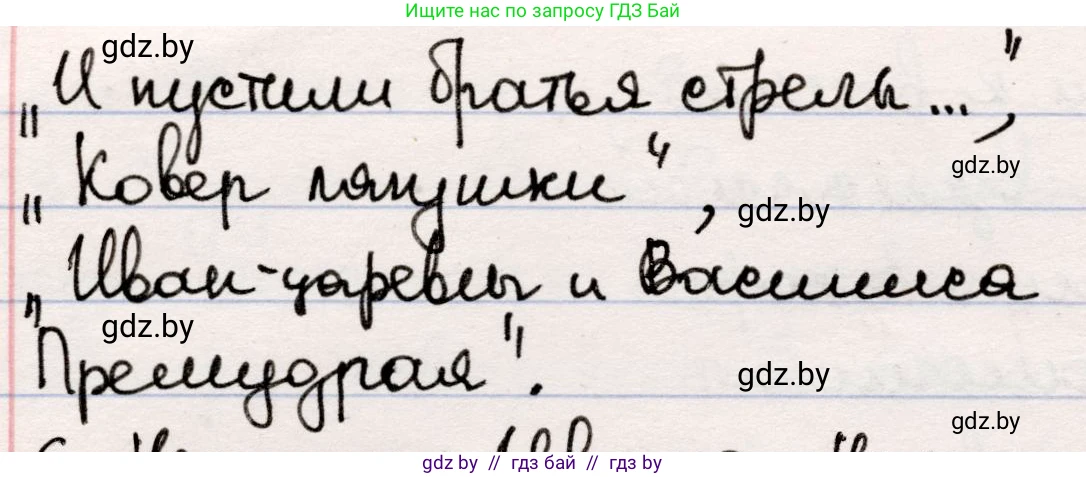 Ищите нас по запросу ГДЗ Бай
gdz.by
„И пустили братья стрелы...",
gdz.by
„Ковер лягушки",
gdz.by
„Иван-царевны и Василиса
gdz.by
Премудрая".
gdz.by
gdz.by
gdz by // гдз бай // гдз by